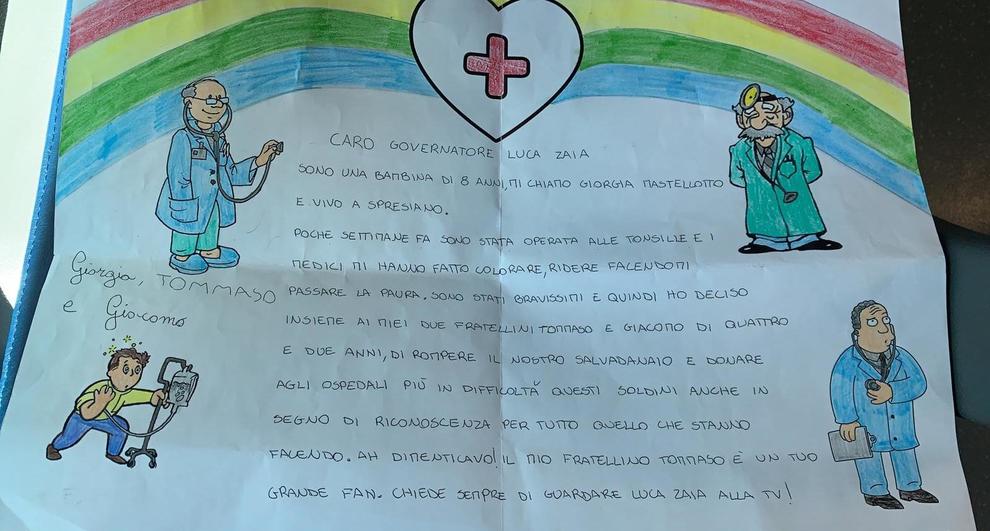 CARO GOVERNATORE LUCA ZAIA
SONO UNA BAMBINA DI 8 ANNI, MI CHIAMO GIORGIA MASTELLOTTO
E VIVO A SPRESIANO.
POCHE SETTIMANE FA SONO STATA OPERATA ALLE TONSILLE E I
MEDICI MI HANNO FATTO COLORARE, RIDERE FACENDOMI
PASSARE LA PAURA. SONO STATI BRAVISSIMI E QUINDI HO DECISO
INSIEME AI MIEI DUE FRATELLINI TOMMASO E GIACOMO DI QUATTRO
E DUE ANNI, DI ROMPERE IL NOSTRO SALVADANAIO E DONARE
AGLI OSPEDALI PIÙ IN DIFFICOLTÀ QUESTI SOLDINI ANCHE IN
SEGNO DI RICONOSCENZA PER TUTTO QUELLO CHE STANNO
FACENDO. AH DIMENTICAVO! IL MIO FRATELLINO TOMMASO È UN TUO
GRANDE FAN. CHIEDE SEMPRE DI GUARDARE LUCA ZAIA ALLA TV!
Giorgia, TOMMASO
e Giacomo